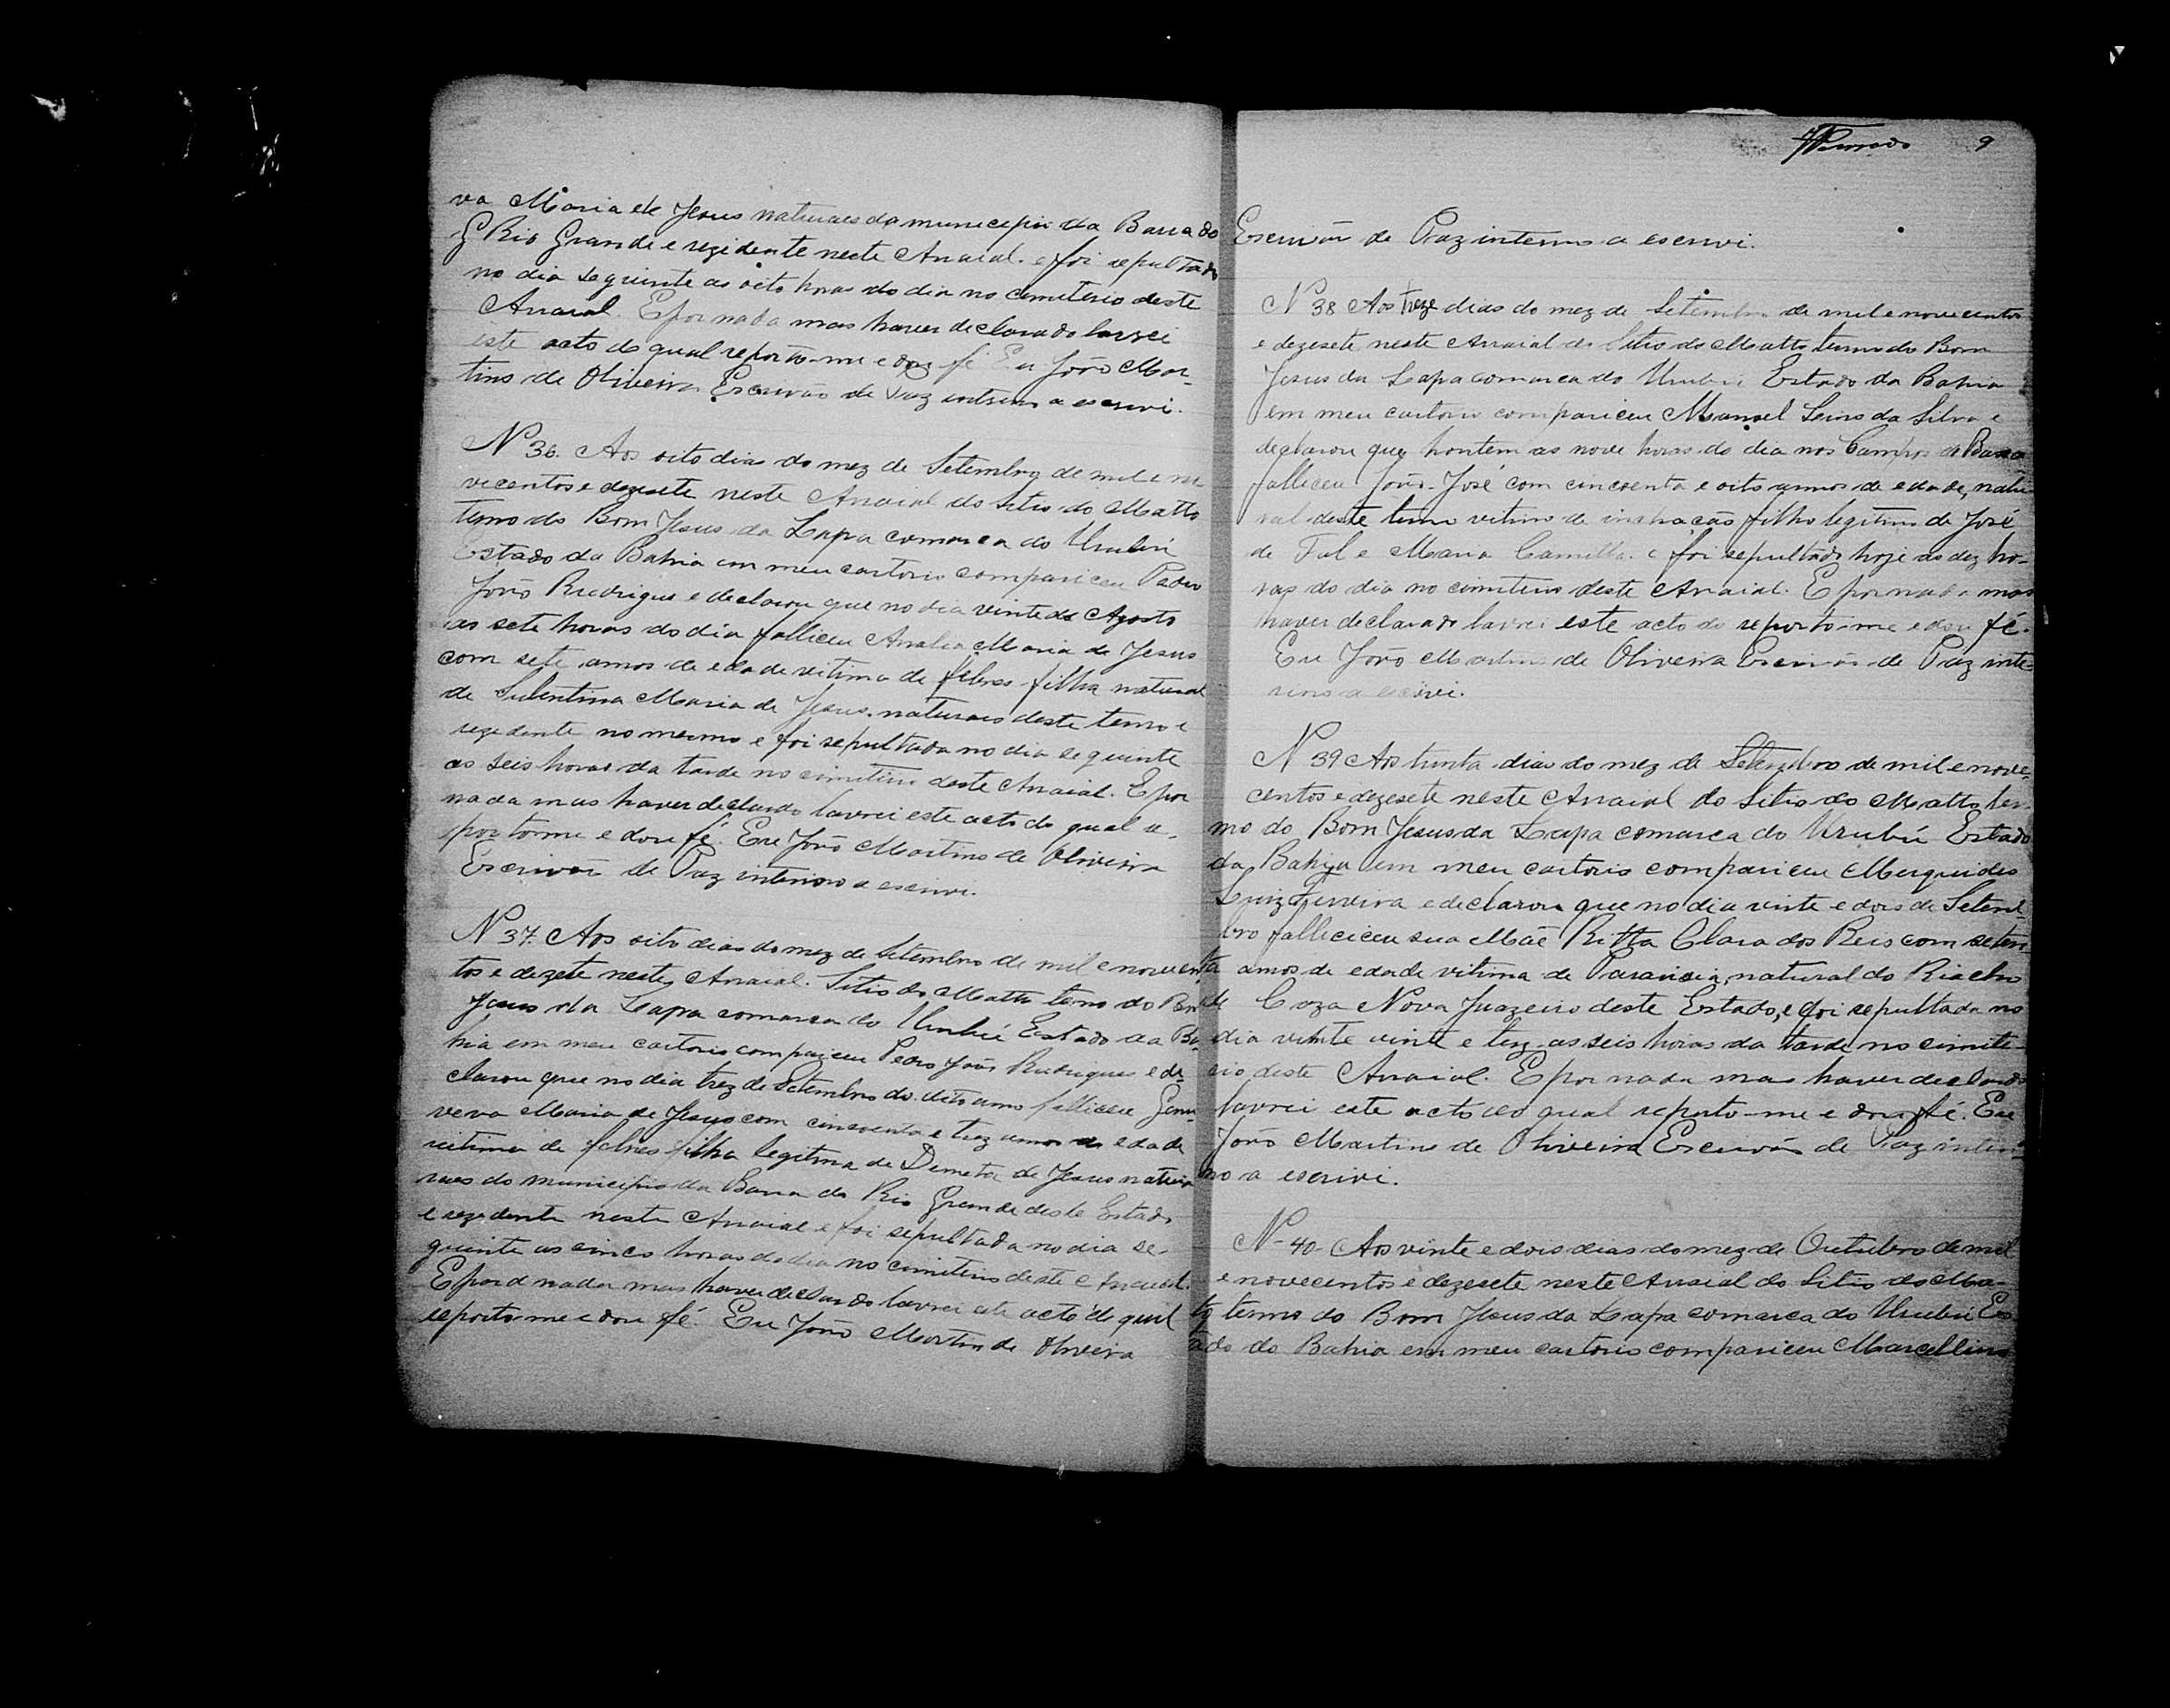 va Maria de Jesus naturaes do municipio da Barra do
Rio Grande e rezidente neste Arraial. e foi sepultado
no dia seguinte as oito horas do dia no cemiterio deste
Arraial. E por nada mas haver declarado lavrei
este acto do qual reporto-me e dou fé Eu João Mar-
tins de Oliveira Escrivão de Paz interino a escrevi.
N 36. Aos oito dias do mez de Setembro de mil e no
vecentos e dezesete neste Arraial do Sitio do Matto
termo do Bom Jesus da Lapa comarca do Urubú
Estado da Bahia em meu cartorio compariceu Pedro
João Rudrigues e declarou que no dia vinte de Agosto
as sete horas do dia falliceu Analia Maria de Jesus
com sete annos de edade vitima de febres filha natural
de Maria de Jesus. naturaes deste termo e
rezedente no mesmo e foi sepultada no dia seguinte
as seis horas da tarde no cimiterio deste Arraial. E por
nada mas haver declarado lavrei este acto do qual re-
portome e dou fé. Eu João Martins de Oliveira
Escrivão de Paz interino a escrivi.
N 37. Aos oito dias do mez de Setembro de mil e novecen
tos e dezete neste Arraial. Sitio do Matto termo do Bom
Jesus da Lapa comarca do Urubú Estado da Ba-
hia em meu cartorio compariceu Pedro João Rudrigues e de-
clarou que no dia trez de Setembro do dito anno falliceu Genu
veva Maria de Jesus com cincoenta e trez annos de edade
vitima de febres filha legitima de de Jesus natu
raes do municipio da Barra do Rio Grande deste Estado
e rezedente neste Arraial e foi sepultada no dia se-
guinte as cinco horas do dia no cimiterio deste Arraial.
E por nada mas haver declarado lavrei este acto do qual
reporto-me e dou fé. Eu João Martins de Oliveira
9
Escrivão de Paz interino a escrivi.
N 38 Aos treze dias do mez de Setembro de mil e novecentos
e dezesete neste Arraial do Sitio do Matto termo do Bom
Jesus da Lapa comarca do Urubú Estado da Bahia
em meu cartorio compariceu Manoel Lino da Silva e
declarou que hontem as nove horas do dia nos Campos de
falliceu João José com cincoenta e oito annos de edade, natu
ral deste termo vitimo de inchação filho legitimo de José
de Tal e Maria Camilla. e foi sepultado hoje as dez ho-
ras do dia no cimiterio deste Arraial. E por nada mas
haver declarado lavrei este acto do reporto-me e dou fé.
Eu João Martins de Oliveira Escrivão de Paz inte-
rino a escrivi.
N 39 Aos trinta dias do mez de Setembro de mil e nove-
centos e dezesete neste Arraial do Sitio do Matto ter-
mo do Bom Jesus da Lapa comarca do Urubú Estado
da Bahia em meu cartorio compariceu Merquides
Luiz e declarou que no dia vinte e dois de Setem-
bro falliciceu sua Mãe Ritta Clara dos Reis com seten-
ta annos de edade vitima de natural do Riacho
de Caza Nova Juazeiro deste Estado, e foi sepultada no
dia vinte vinte e trez as seis horas da tarde no cimite-
rio deste Arraial. E por nada mas haver declarado
lavrei este acto do qual reporto-me e dou fé. Eu
João Martins de Oliveira Escrivão de Paz interi-
no a escrivi.
N- 40- Aos vinte e dois dias do mez de Outubro de mil
e novecentos e dezesete neste Arraial do Sitio do Ma-
to termo do Bom Jesus da Lapa comarca do Urubú Es
tado da Bahia em meu cartorio compariceu Marcellino